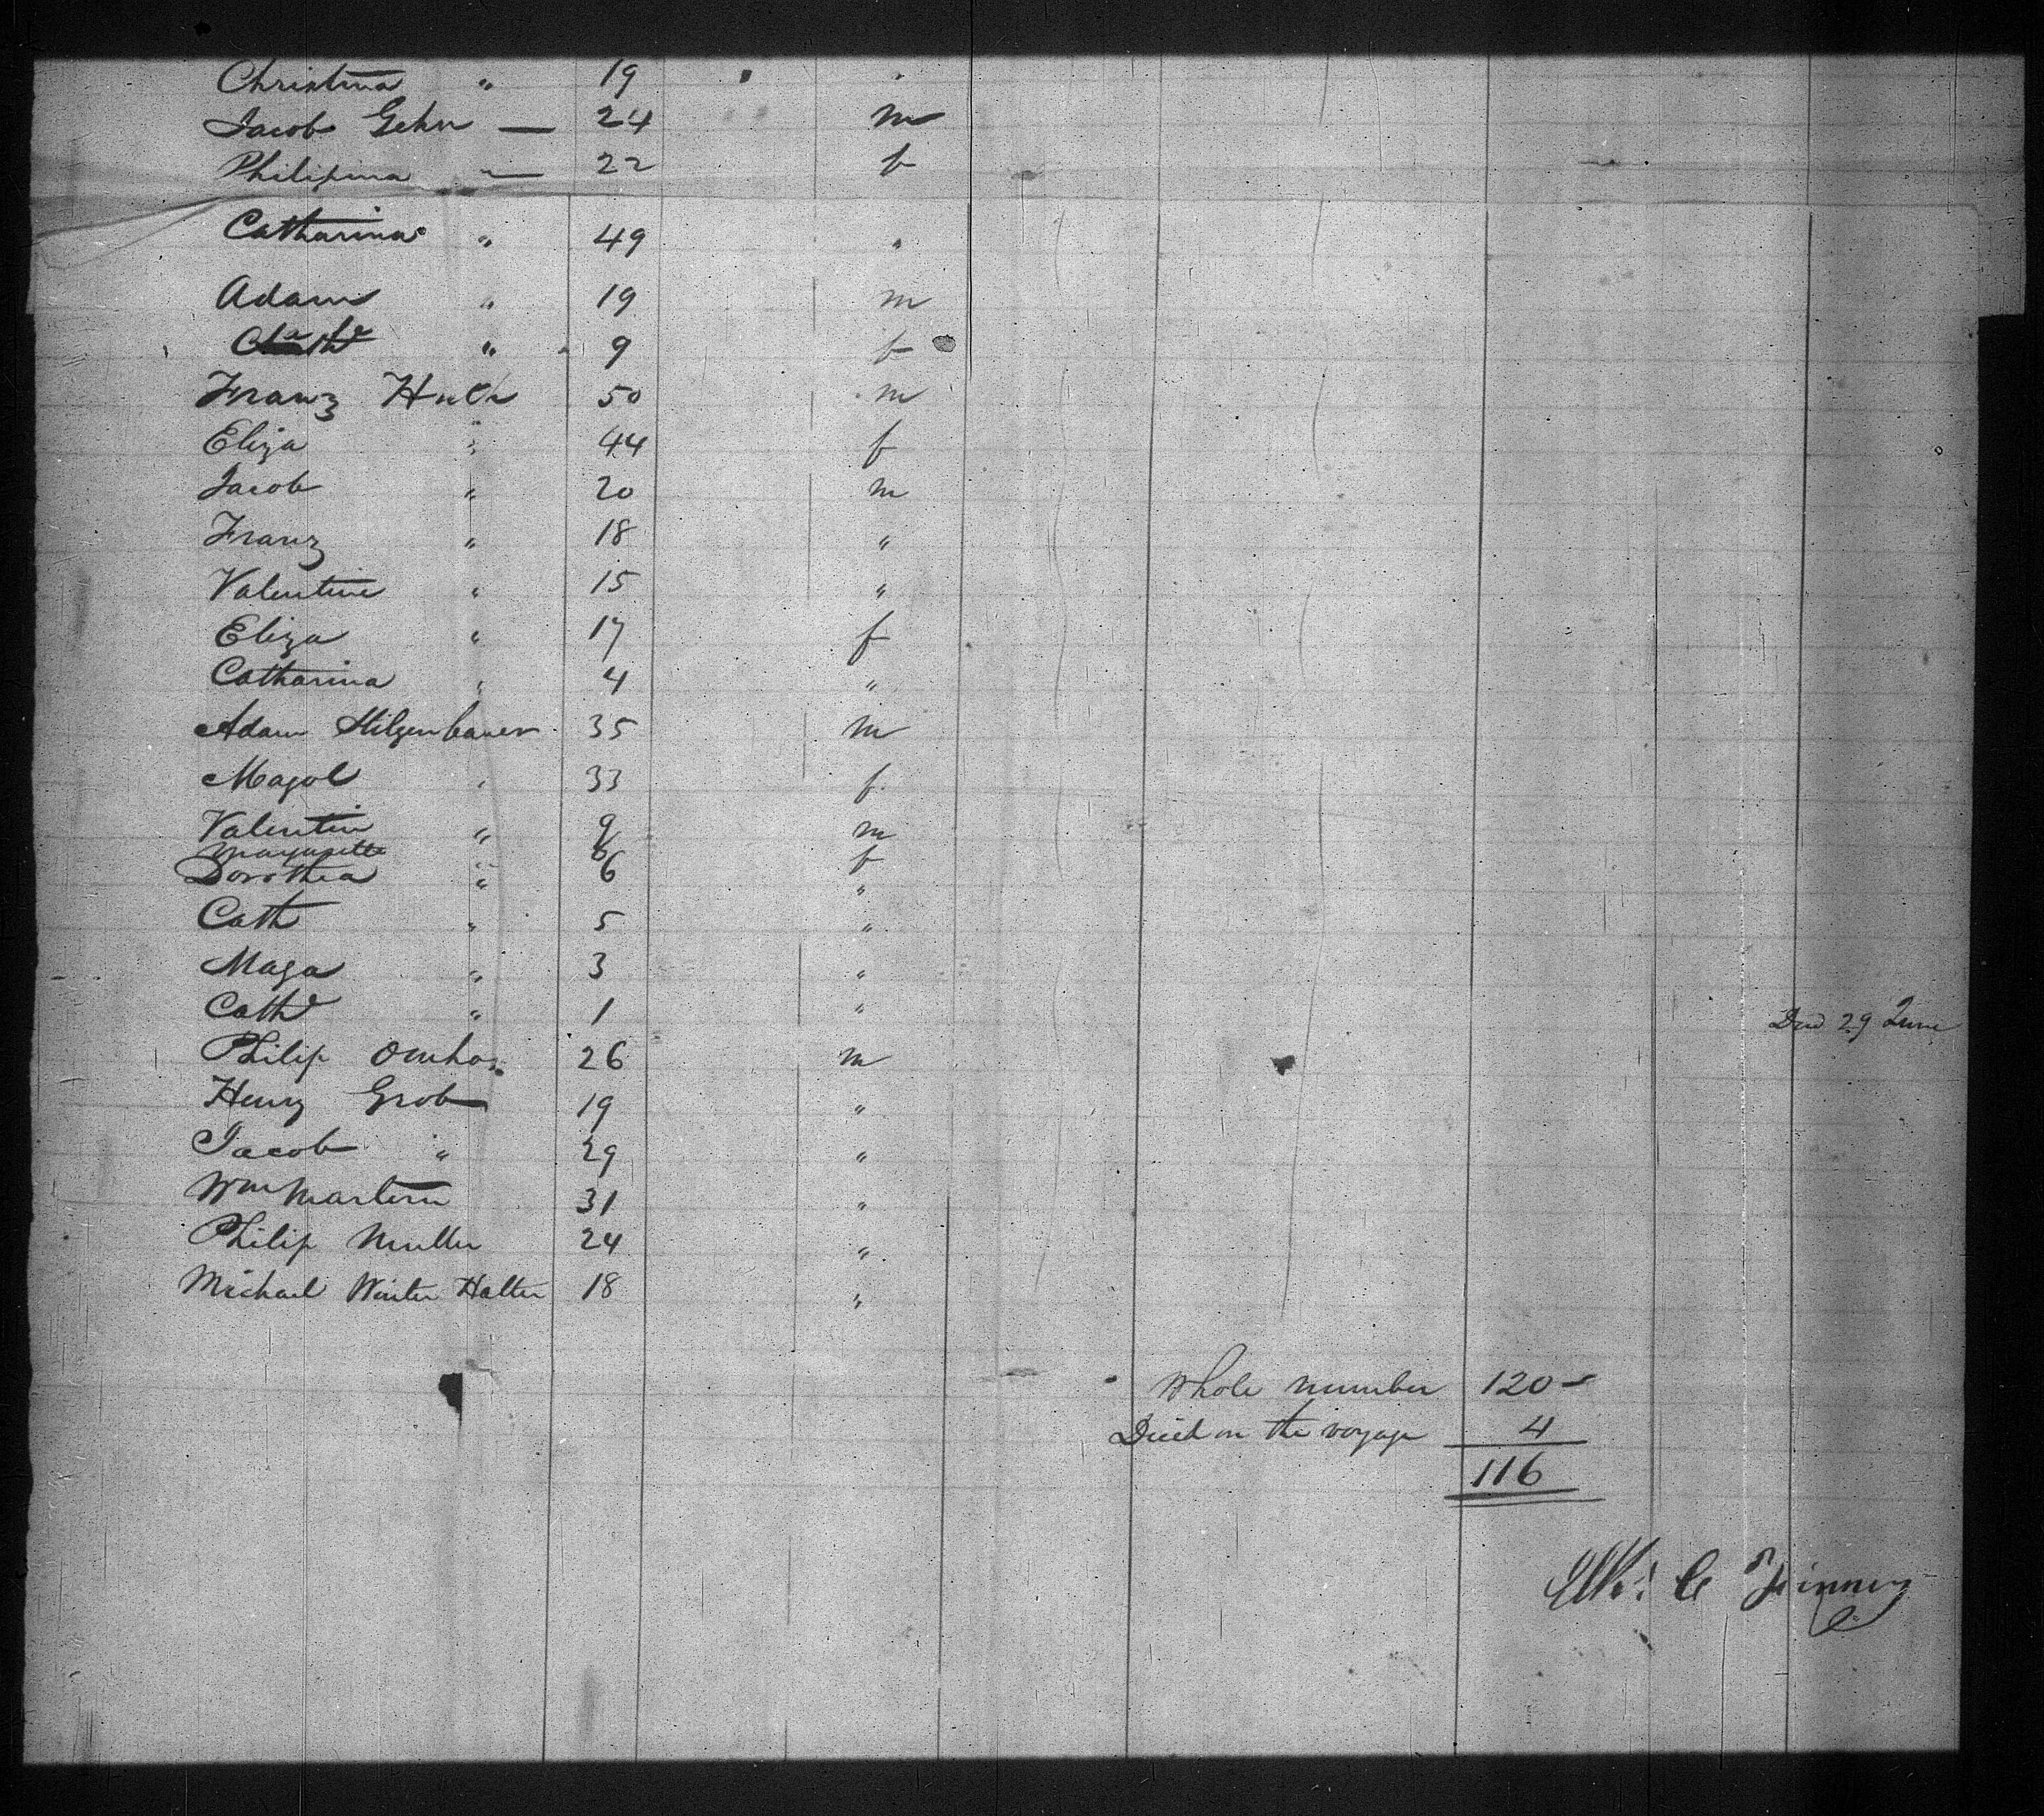 Christina " 19
Jacob Gehn — 24 m
Philipina " — 22 f
Catharina " 49 "
Adam " 19 m
" 9 f
Franz 50 m
Eliza " 44 f
Jacob " 20 m
Franz " 18 "
Valentine " 15 "
Eliza " 17 f
Catharina " 4 "
Adam Hilgenbauer 35 m
Magol " 33 f
Valentin " 9 m
Margarette " 8 f
Dorothea " 6 "
Cath " 5 "
Maga " 3 "
Cath " 1 " Died 29 June
Philip 26 m
Henry Grob 19 "
Jacob " 29 "
Wm Martin 31 "
Philip Muller 24 "
Michael Winter Halter 18 "
Whole number 120
Died on the voyage 4
116
C Finney